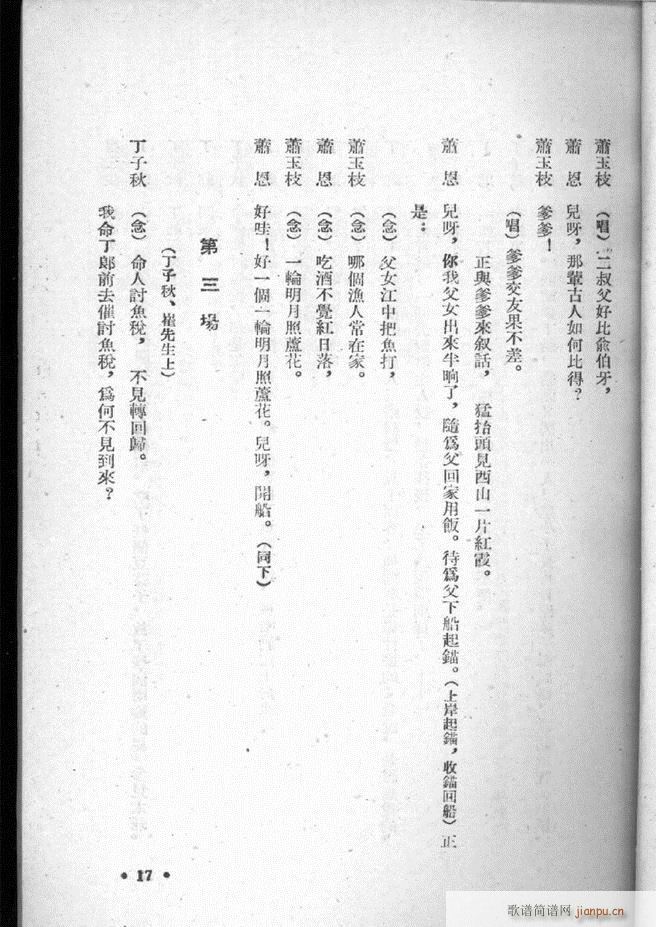 蕭玉枝 (唱)二叔父好比俞伯牙,
蕭 恩 兒呀,那輩古人如何比得?
蕭玉枝 爹爹!
(唱)爹爹交友果不差。
正與爹爹來叙話, 猛抬頭見西山一片紅霞。
蕭 恩 兒呀,你我父女出來半晌了,隨爲父回家用飯。待爲父下船起錨。(上岸起錨,收錨回船)正
是:
(念)父女江中把魚打,
蕭玉枝 (念)哪個漁人常在家。
蕭 恩 (念)吃酒不覺紅日落,
蕭玉枝 (念)一輪明月照蘆花。
蕭 恩 好哇!好一個一輪明月照蘆花。兒呀,開船。(同下)
第 三 場
(丁子秋、崔先生上)
丁子秋 (念)命人討魚稅, 不見轉回歸。
我命丁郎前去催討魚稅,爲何不見到來?
• 17 •
歌谱简谱网 jianpu.cn